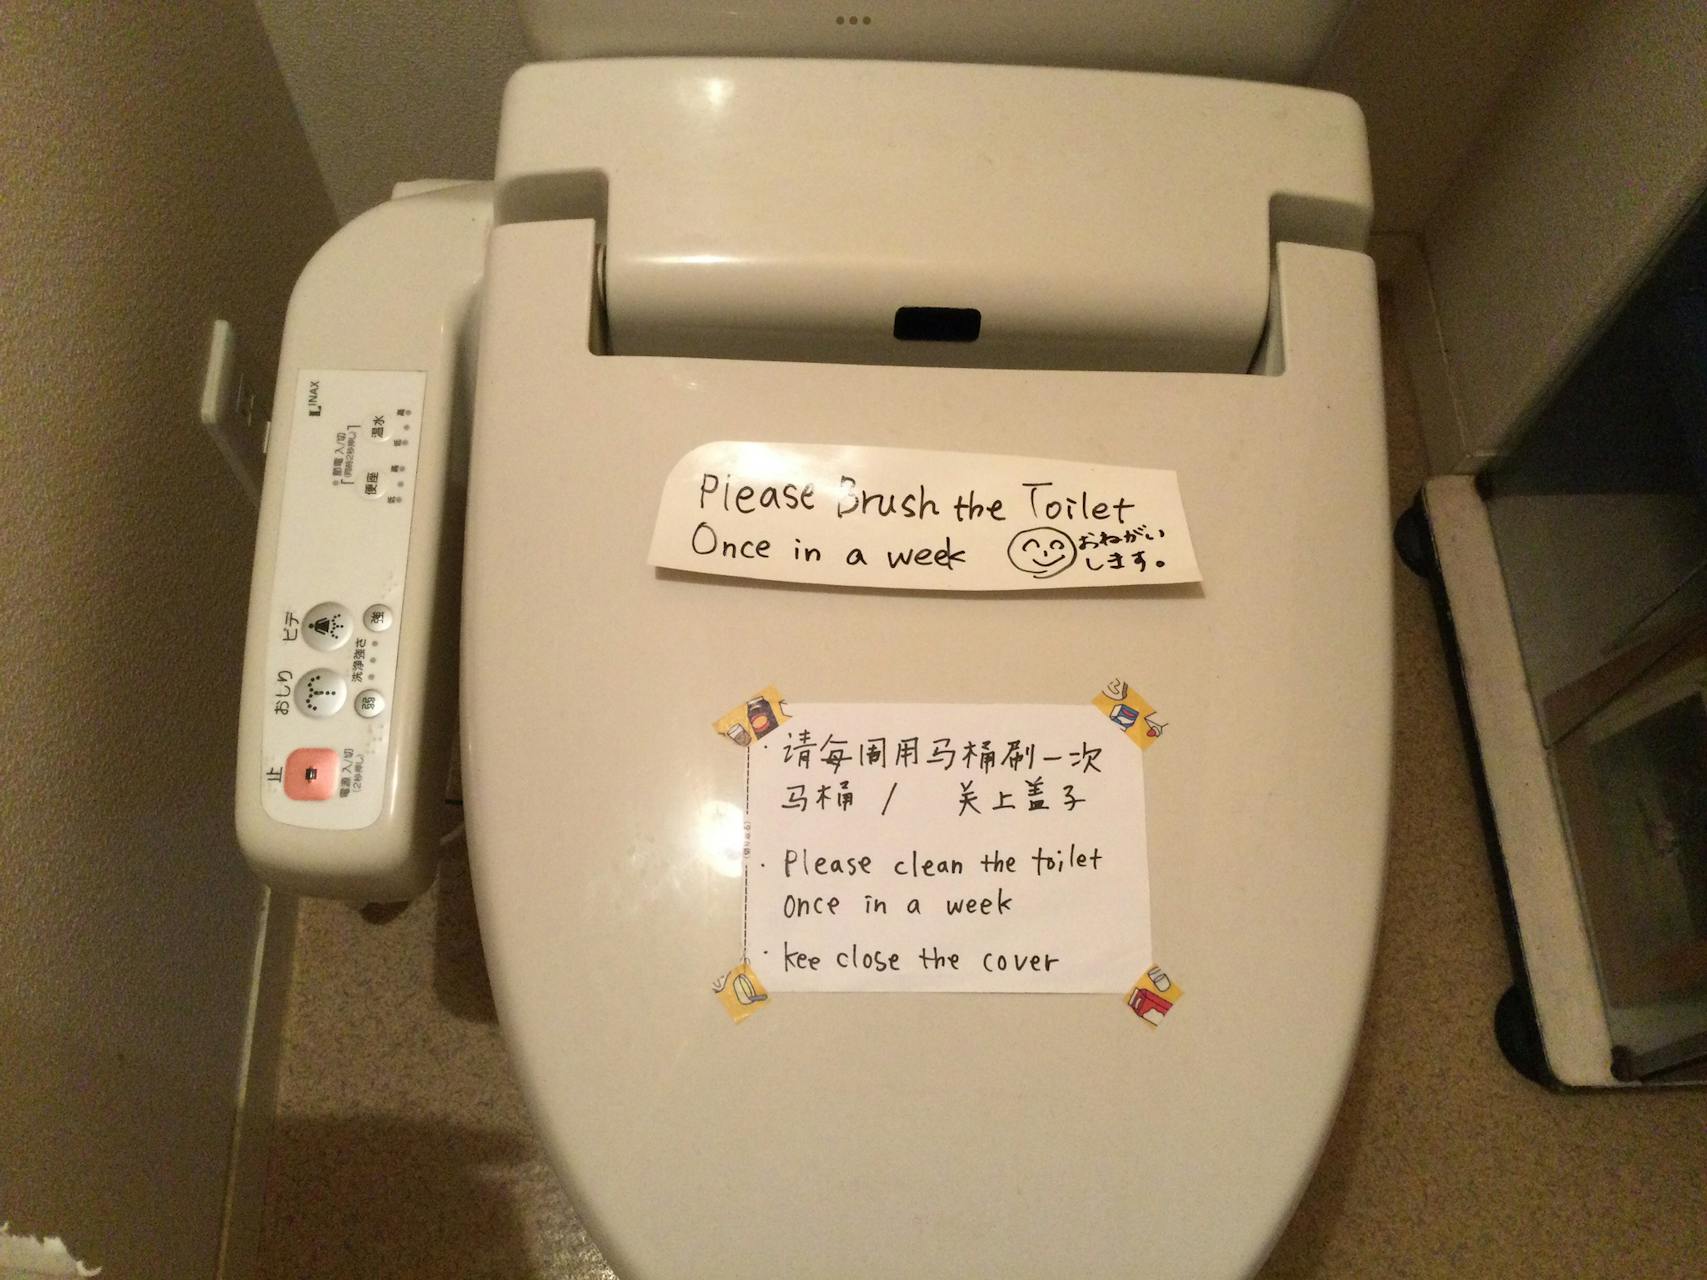 INAX
節電 入/切
(同時2秒押し)
温水
高
低
便座
高
低
ビデ
おしり
強
洗浄強さ
弱
止
電源 入/切
(2秒押し)
Please Brush the Toilet
Once in a week
おねがい
します。
・请每周用马桶刷一次
马桶 / 关上盖子
・Please clean the toilet
once in a week
・kee close the cover